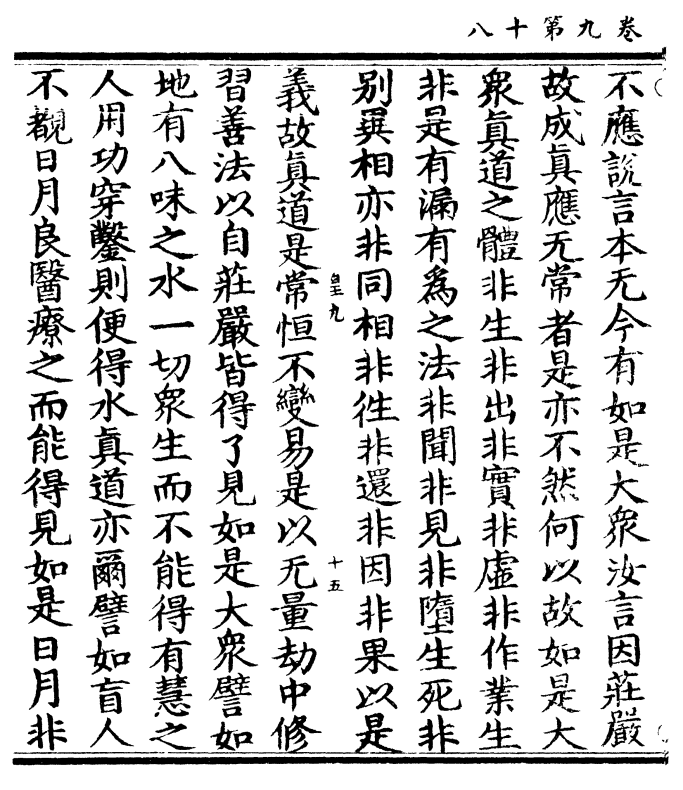 卷九第十八
不應說言本无今有如是大衆汝言因莊嚴
故成眞應无常者是亦不然何以故如是大
衆眞道之體非生非出非實非虛非作業生
非是有漏有爲之法非聞非見非墮生死非
别異相亦非同相非徃非還非因非果以是
皇九
十五
義故眞道是常恒不變易是以无量劫中修
習善法以自莊嚴皆得了見如是大衆譬如
地有八味之水一切衆生而不能得有慧之
人用功穿鑿則便得水眞道亦爾譬如盲人
不覩日月良醫療之而能得見如是日月非